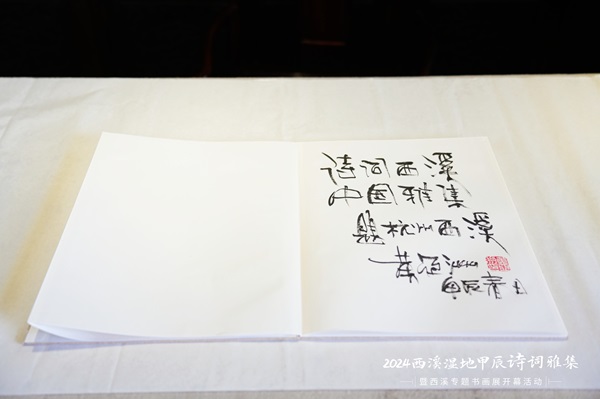 诗词西溪
中国雅集
题杭州西溪
黄
甲辰春月
2024西溪湿地甲辰诗词雅集
暨西溪专题书画展开幕活动